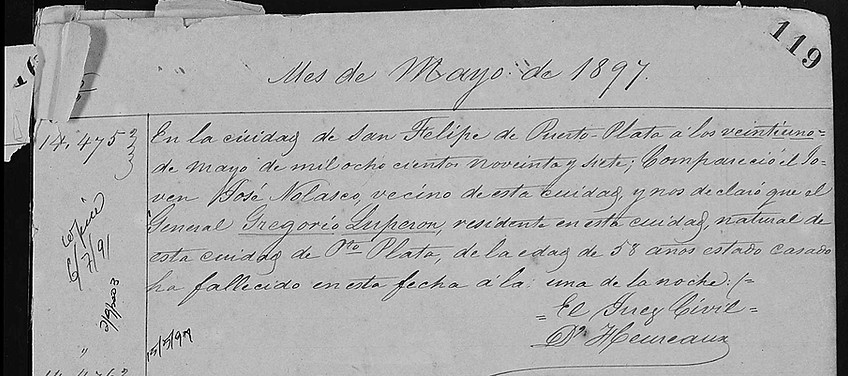 119
Mes de Mayo de 1897.
14,475
En la cuidad de San Felipe de Puerto-Plata á los veintiuno=
de mayo de mil ocho cientos noveinta y siete; Compareció el Jo-
ven José Nolasco, vecino de esta cuidad, y nos declaró que el
General Gregorio Luperon, residente en esta cuidad, natural de
esta cuidad de Pto Plata, de la edad de 58 años estado casado
ha fallecido en esta fecha á la una de la noche:/=
= El Juez Civil =
Ds. Heureaux
7/91
15/5/97